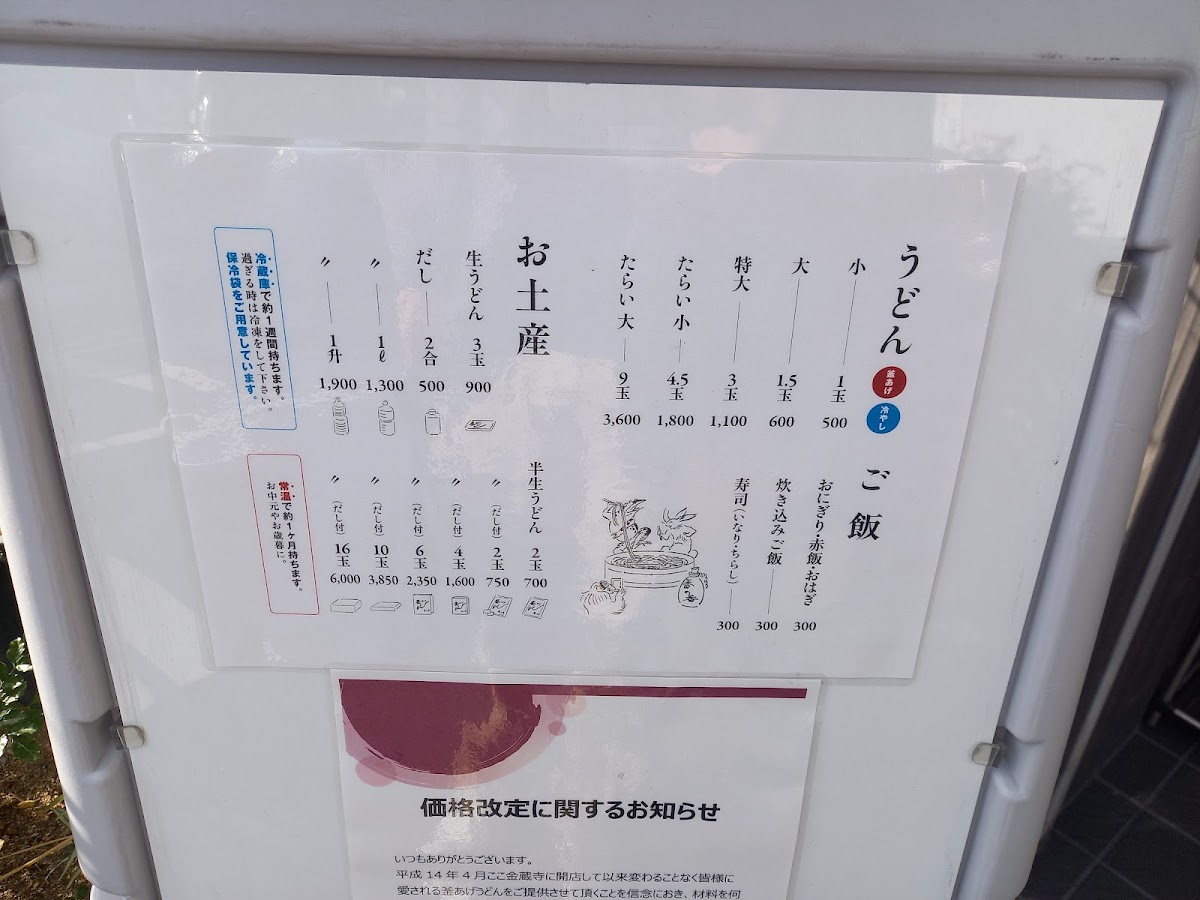 うどん 釜あげ 冷やし
小 1玉 500
大 1.5玉 600
特大 3玉 1,100
たらい小 4.5玉 1,800
たらい大 9玉 3,600
ご飯
おにぎり・赤飯・おはぎ 300
炊き込みご飯 300
寿司(いなり・ちらし) 300
お土産
生うどん 3玉 900
だし 2合 500
〃 1ℓ 1,300
〃 1升 1,900
冷蔵庫で約1週間持ちます。
過ぎる時は冷凍をして下さい。
保冷袋をご用意しています。
半生うどん 2玉 700
〃 (だし付) 2玉 750
〃 (だし付) 4玉 1,600
〃 (だし付) 6玉 2,350
〃 (だし付) 10玉 3,850
〃 (だし付) 16玉 6,000
常温で約1ヶ月持ちます。
お中元やお歳暮に。
価格改定に関するお知らせ
いつもありがとうございます。
平成 14 年 4 月ここ金蔵寺に開店して以来変わることなく皆様に
愛される釜あげうどんをご提供させて頂くことを信念におき、材料を何